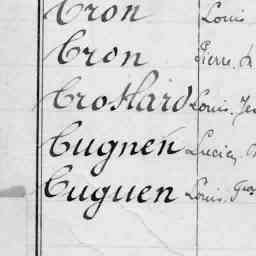 Cron Louis
Cron Pierre
Croslard Louis
Cugnen Lucien
Cuguen Louis